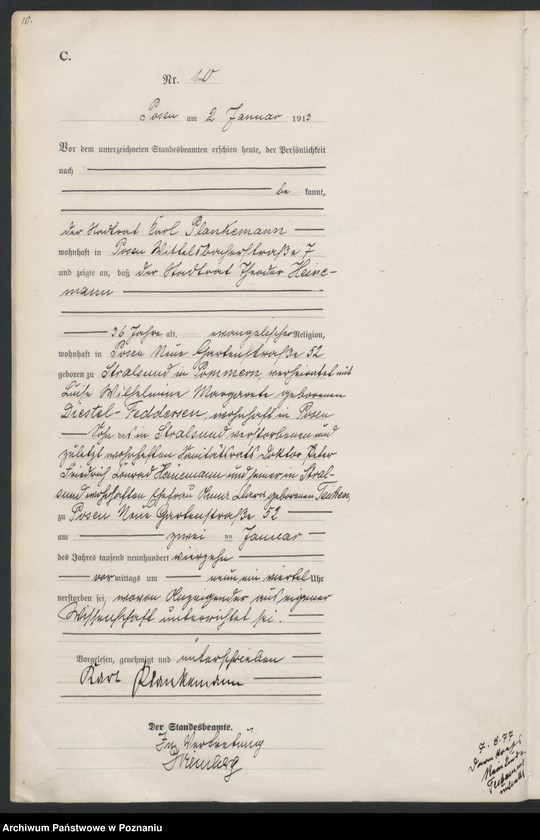 10.
C.
Nr. 10
Posen am 2 Januar 1913
Vor dem unterzeichneten Standesbeamten erschien heute, der Persönlichkeit
nach
be kannt,
der Stadtrat Carl Plankemann
wohnhaft in Posen Wittelsbacherstraße 7
und zeigte an, daß der Stadtrat Theodor Heine-
mann
36 Jahre alt, evangelischer Religion,
wohnhaft in Posen Neue Gartenstraße 52
geboren zu Stralsund in Pommern, verheiratet mit
Luise Wilhelmine Margarete geborenen
Diestel-Feddersen, wohnhaft in Posen
Sohn des in Stralsund verstorbenen und
zuletzt wohnhaften Sanitätsrats Doktor Peter
Friedrich Conrad Heinemann und seiner in Stral-
sund wohnhaften Ehefrau Anna Clara geborenen
zu Posen Neue Gartenstraße 52
am zwei ten Januar
des Jahres tausend neunhundert vierzehn
vor mittags um neun ein viertel Uhr
verstorben sei, wovon Anzeigender aus eigener
Wissenschaft unterrichtet sei.
Vorgelesen, genehmigt und unterschrieben
Karl Plankemann
Der Standesbeamte.
In Vertretung
Archiwum Państwowe w Poznaniu